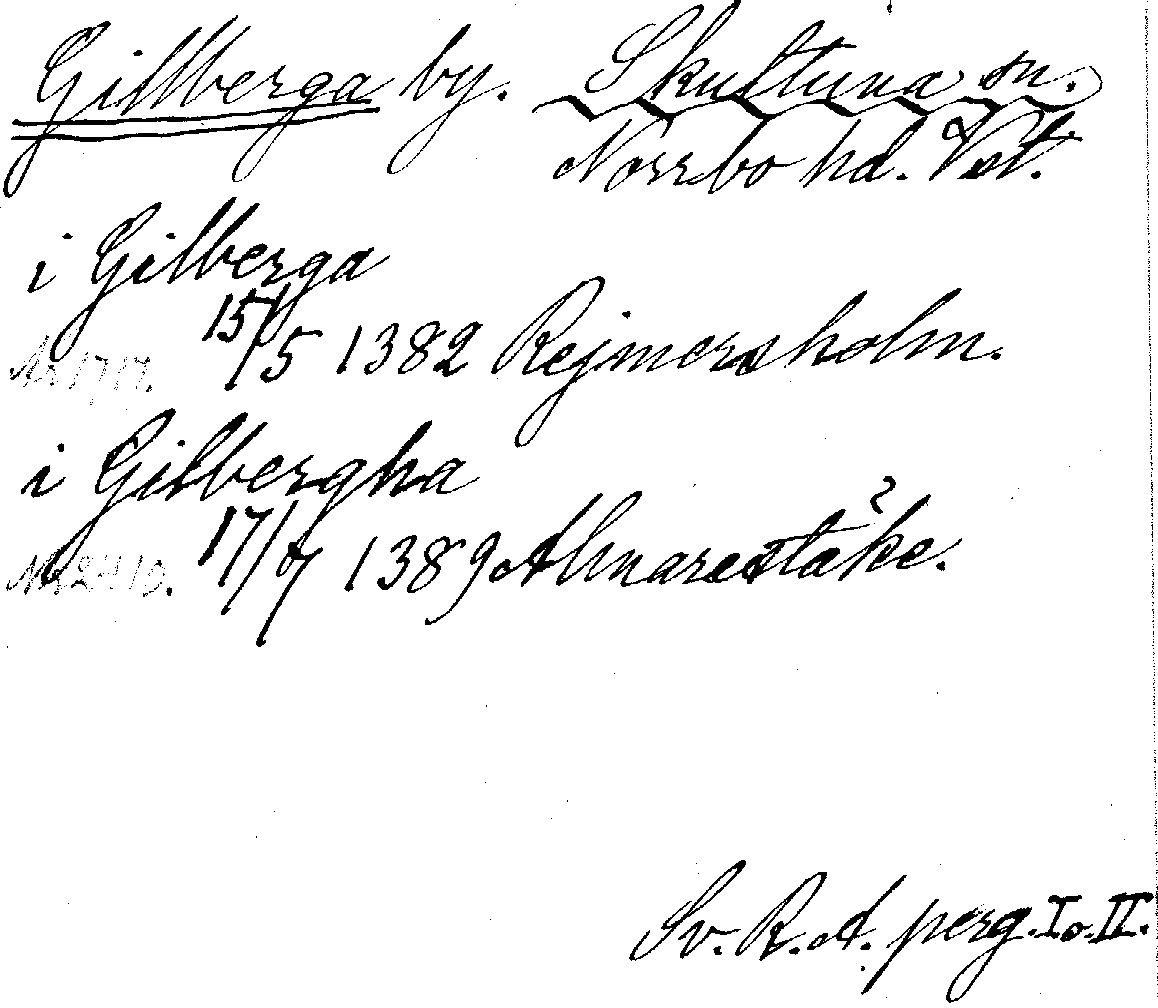 Gillberga by. Skultuna sn.
Norrbo hd. Vst.
i Gilberga
Nr 1717. 15/5 1382 Rejmersholm.
i Gilbergha
17/7 1389 Almarestäke.
Sv. R. A. perg. I o. II.